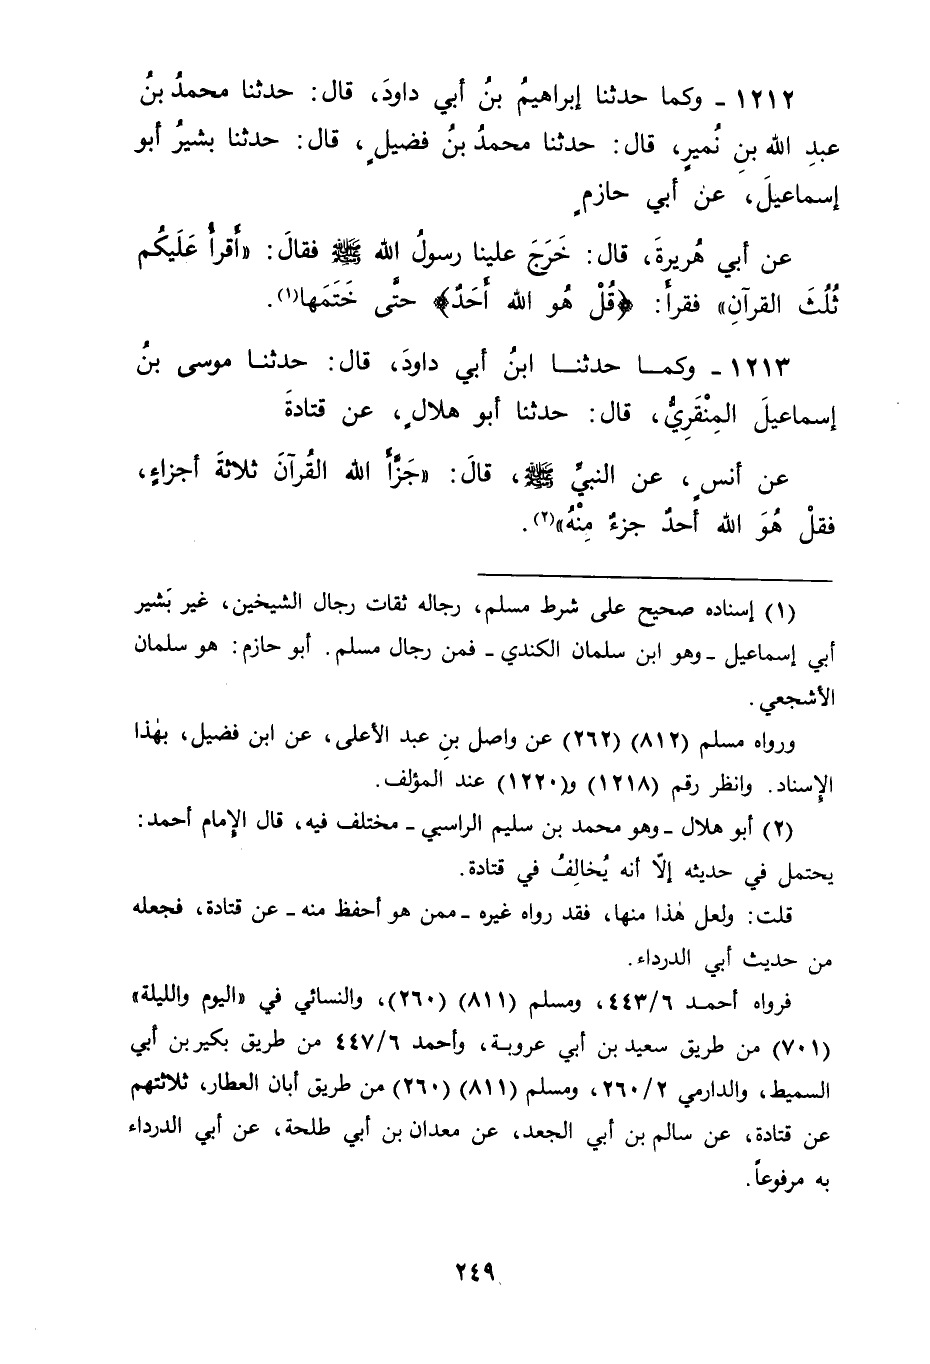 ١٢١٢ ـ وكما حدثنا إبراهيمُ بنُ أبي داودَ، قال: حدثنا محمدُ بنُ
عبدِ الله بنِ نُميرٍ، قال: حدثنا محمدُ بنُ فضيلٍ، قال: حدثنا بشيرُ أبو
إسماعيلَ، عن أبي حازمٍ
عن أبي هُريرةَ، قال: خَرَجَ علينا رسولُ الله ﷺ فقالَ: «أَقرأُ عَلَيكُم
ثُلُثَ القرآنِ» فقرأَ: ﴿قُلْ هُو الله أَحَدٌ﴾ حتَّى خَتَمَها(١).
١٢١٣ ـ وكما حدثنا ابنُ أبي داودَ، قال: حدثنا موسى بنُ
إسماعيلَ المِنْقَرِيُّ، قال: حدثنا أبو هلالٍ، عن قتادةَ
عن أنسٍ، عن النبيِّ ﷺ، قالَ: «جَزَّأَ الله القُرآنَ ثلاثةَ أجزاءٍ،
فقلْ هُوَ الله أحدٌ جزءٌ مِنْهُ»(٢).
(١) إسناده صحيح على شرط مسلم، رجاله ثقات رجال الشيخين، غير بَشير
أبي إسماعيل ـ وهو ابن سلمان الكندي ـ فمن رجال مسلم. أبو حازم: هو سلمان
الأشجعي.
ورواه مسلم (٨١٢) (٢٦٢) عن واصل بنِ عبد الأعلى، عن ابن فضيل، بهٰذا
الإِسناد. وانظر رقم (١٢١٨) و(١٢٢٠) عند المؤلف.
(٢) أبو هلال ـ وهو محمد بن سليم الراسبي ـ مختلف فيه، قال الإِمام أحمد:
يحتمل في حديثه إلّا أنه يُخالِفُ في قتادة.
قلت: ولعل هٰذا منها، فقد رواه غيره ـ ممن هو أحفظ منه ـ عن قتادة، فجعله
من حديث أبي الدرداء.
فرواه أحمد ٤٤٣/٦، ومسلم (٨١١) (٢٦٠)، والنسائي في «اليوم والليلة»
(٧٠١) من طريق سعيد بن أبي عروبة، وأحمد ٤٤٧/٦ من طريق بكير بن أبي
السميط، والدارمي ٢٦٠/٢، ومسلم (٨١١) (٢٦٠) من طريق أبان العطار، ثلاثتهم
عن قتادة، عن سالم بن أبي الجعد، عن معدان بن أبي طلحة، عن أبي الدرداء
به مرفوعاً.
٢٤٩